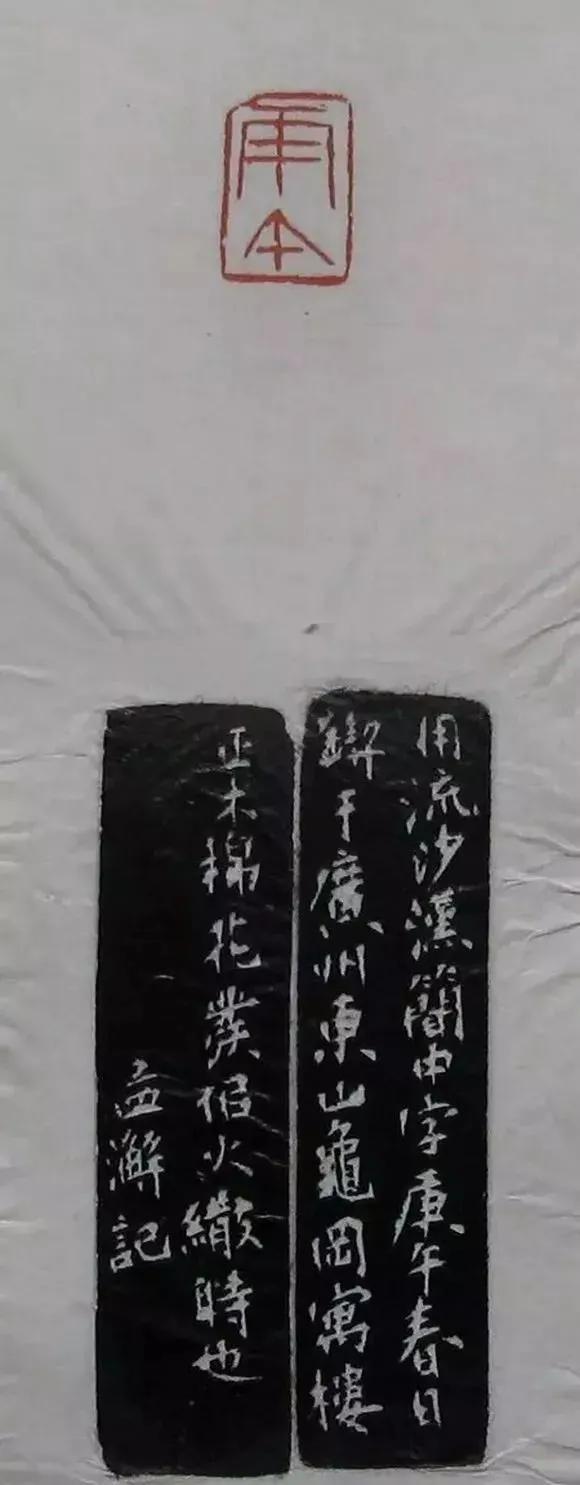 庚午
用流沙漢簡中字庚午春日
鍥于廣州東山龜岡寓樓
正木棉花發似火繖時也
孟澥記